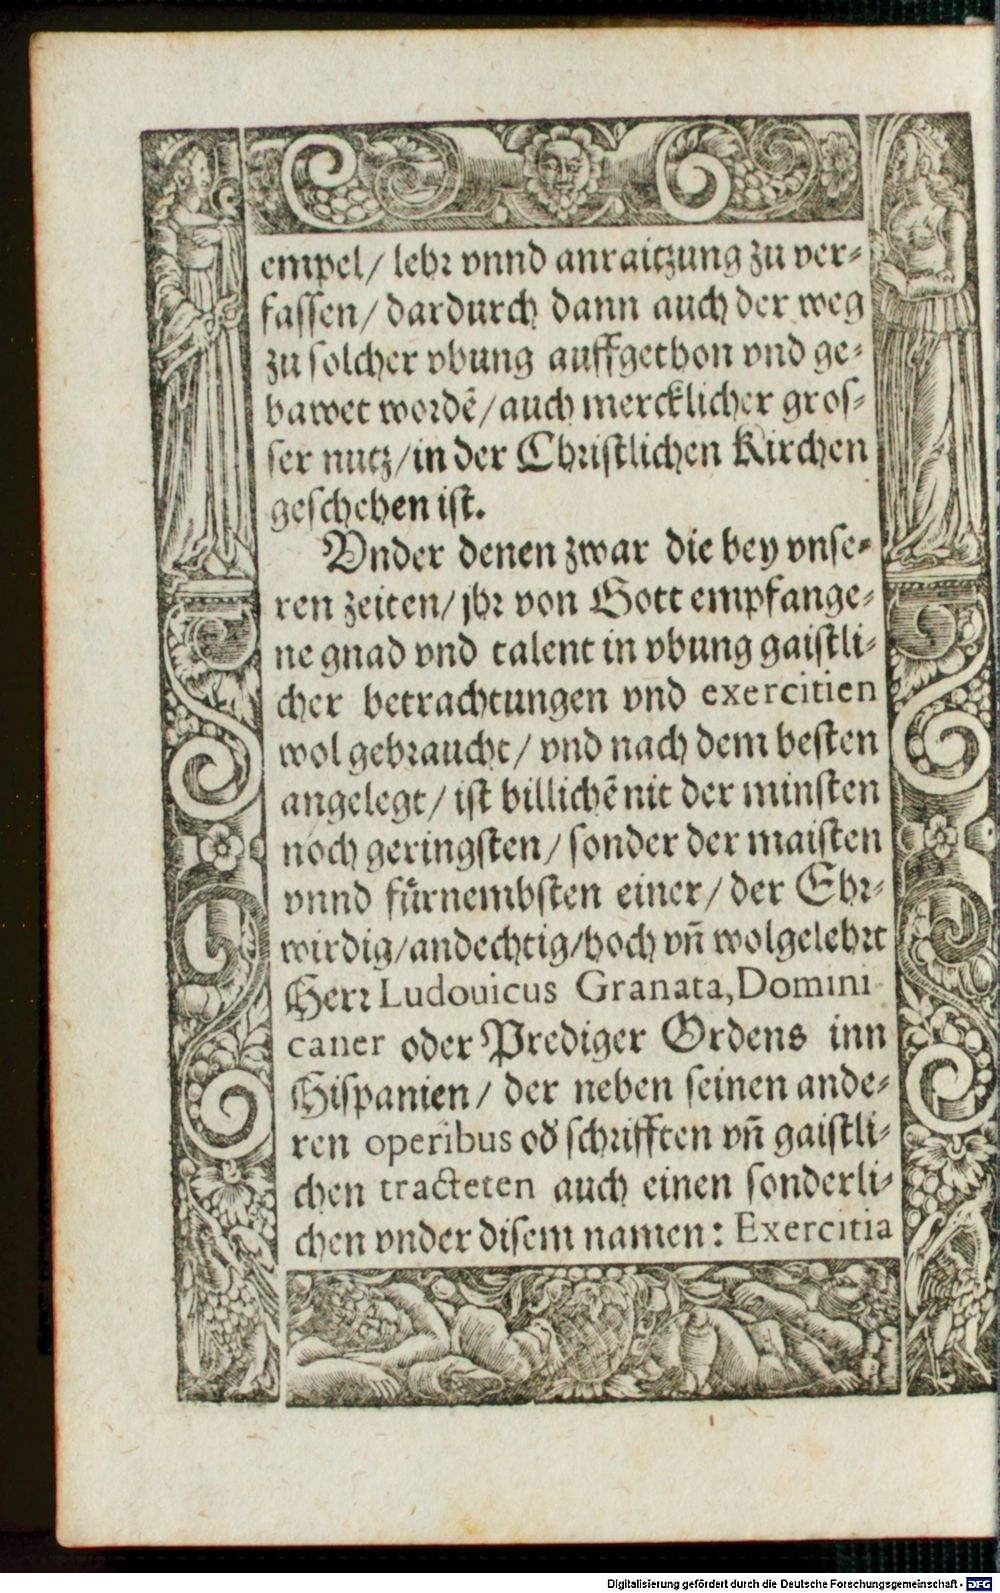 empel/ lehr vnnd anraitzung zu ver-
fassen/ dardurch dann auch der weg
zu solcher vbung auffgethon vnd ge-
bawet wordẽ/ auch mercklicher gros-
ser nutz/ in der Christlichen Kirchen
geschehen ist.
Vnder denen zwar die bey vnse-
ren zeiten/ jhr von Gott empfange-
ne gnad vnd talent in vbung gaistli-
cher betrachtungen vnd exercitien
wol gebraucht/ vnd nach dem besten
angelegt/ ist billichẽ nit der minsten
noch geringsten/ sonder der maisten
vnnd fuͤrnembsten einer/ der Ehr-
wirdig/ andechtig/ hoch vñ wolgelehrt
Herr Ludouicus Granata, Domini
caner oder Prediger Ordens inn
Hispanien/ der neben seinen ande-
ren operibus od̃ schrifften vñ gaistli-
chen tracteten auch einen sonderli-
chen vnder disem namen: Exercitia
Digitalisierung gefördert durch die Deutsche Forschungsgemeinschaft - DFG